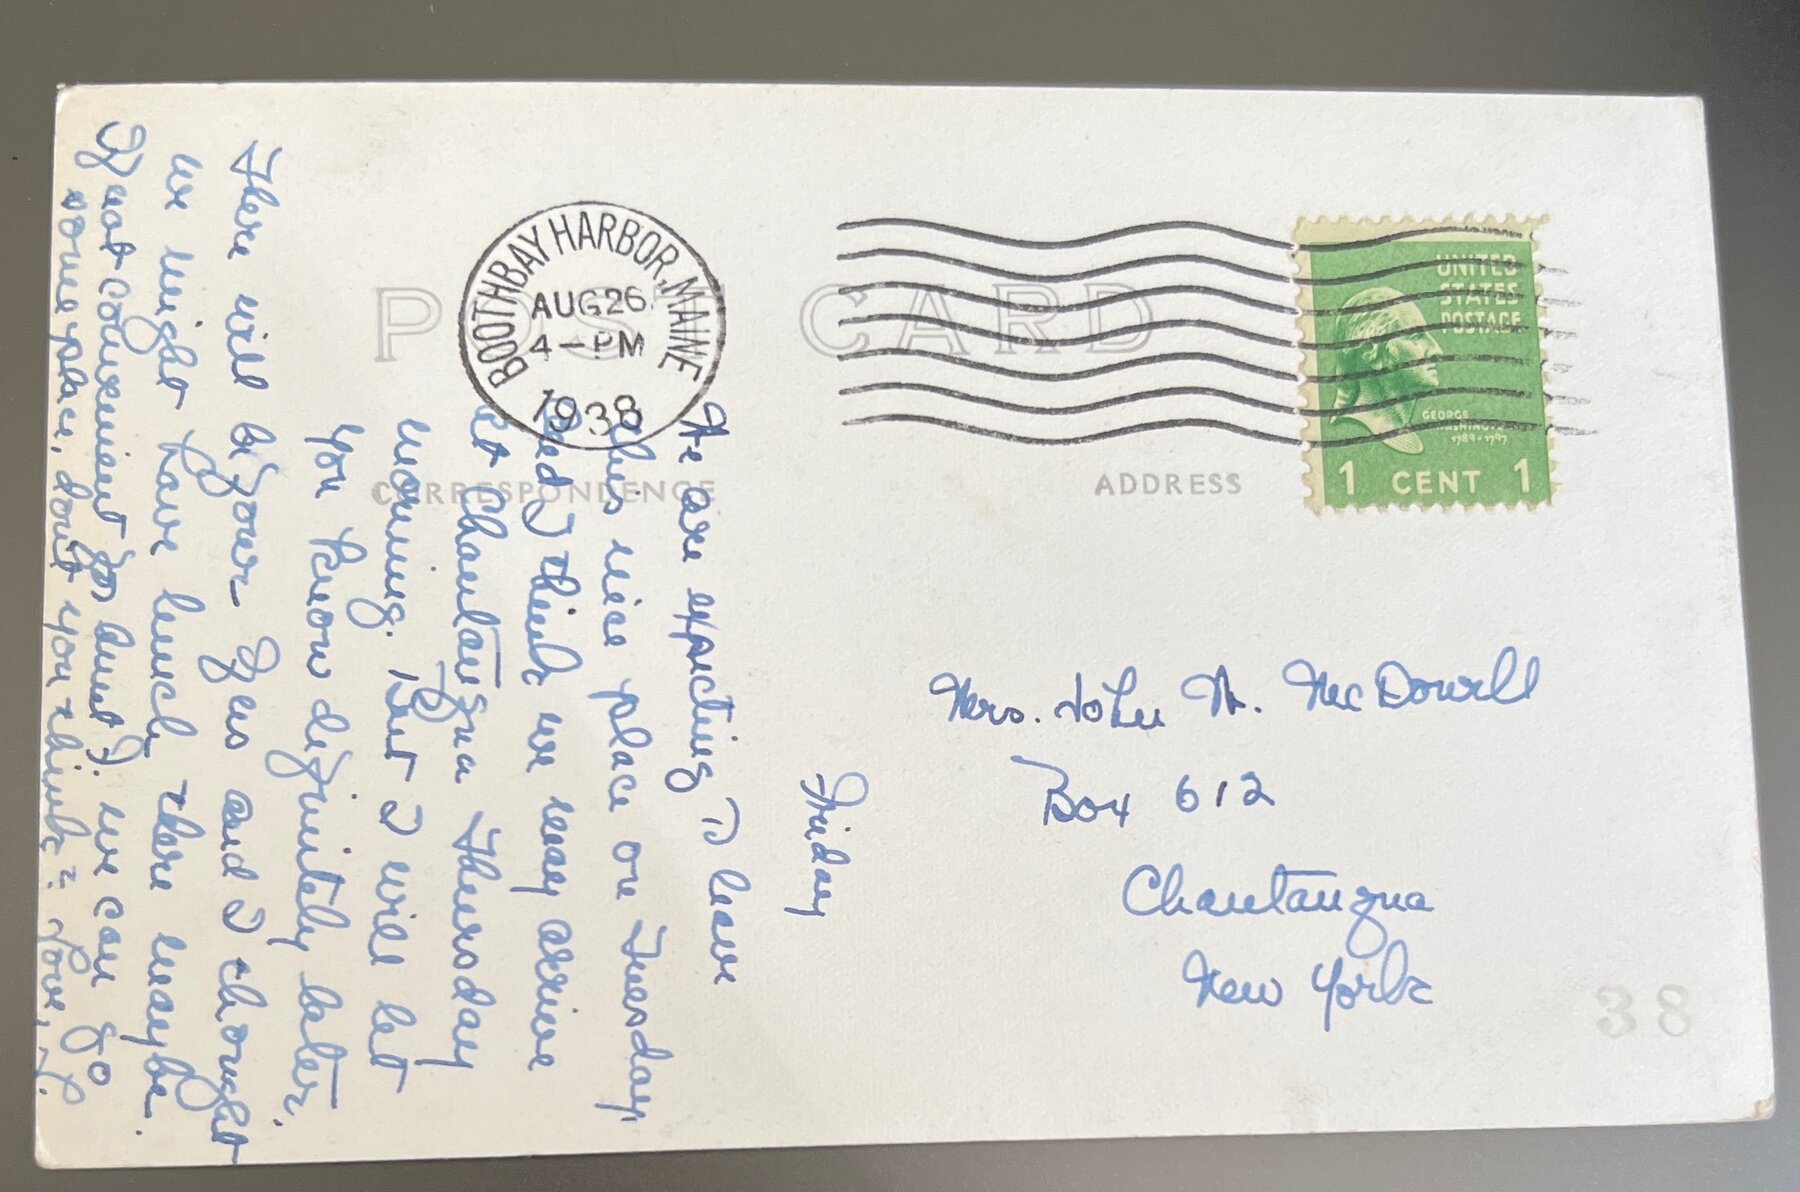 POST CARD
BOOTHBAY HARBOR, MAINE
AUG 26
4-PM
1938
UNITED
STATES
POSTAGE
GEORGE
WASHINGTON
1789-1797
1 CENT 1
CORRESPONDENCE
ADDRESS
Friday
We are expecting to leave
this nice place on Tuesday
and I think we may arrive
at Chautauqua Thursday
morning. But I will let
you know definitely later.
There will be four of us and I thought
we might have lunch there maybe.
If not convenient for aunt J. we can go
some place, dont you think? Love,
Mrs. John W. McDowell
Box 612
Chautauqua
New York
38